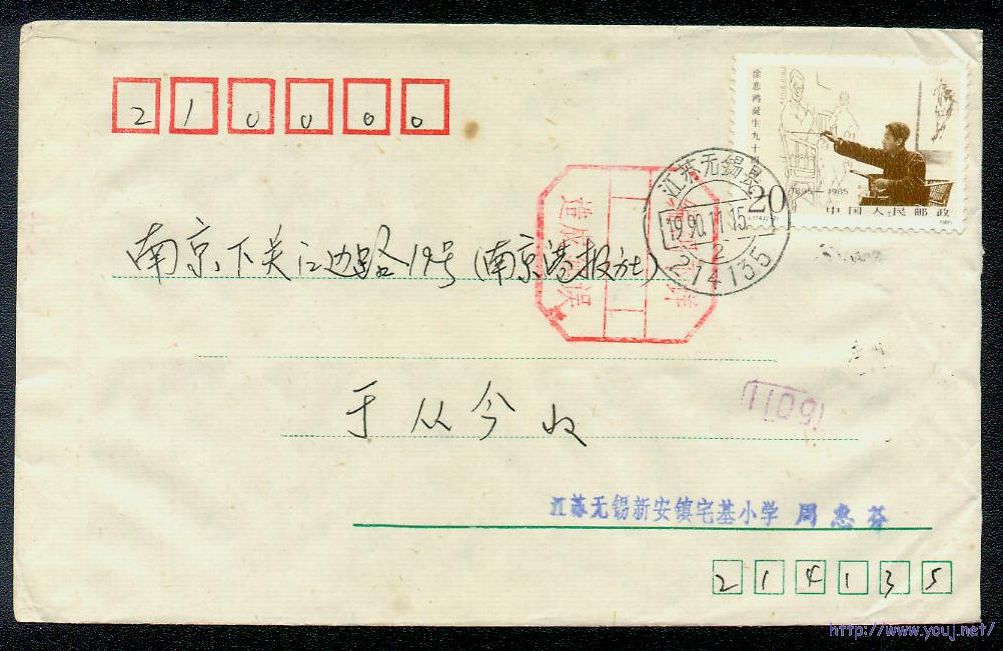 210000
徐悲鸿诞生九十
1895-1985
20
中国人民邮政
江苏无锡县
1990.11.15
2
214135
造成 误
南京下关江边路19号(南京港报社)
于从今收
江苏无锡新安镇宅基小学 周惠芬
214135
http://www.youj.net/